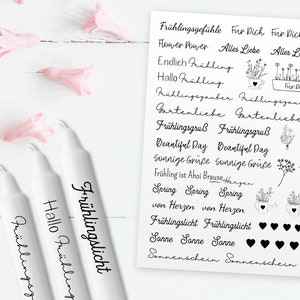 Frühlingsgefühle Für Dich Für Dich
Flower Power Alles Liebe Alles
Endlich Frühling
Hallo Frühling
Für D
Frühlingszauber Frühlingszauber
Gartenliebe Gartenliebe
Frühlingsgruß Frühlingsgruß
Beautiful Day Beautiful Day
Sonnige Grüße Sonnige Grüße
Frühling ist Ahoi Brause
Herzen
Spring Spring Spring
von Herzen von Herzen
Frühlingslicht Frühlingslicht
Sonne Sonne Sonne
Sonnenschein Sonnenschein
Frühlings
Hallo Frühling
Frühlingslicht